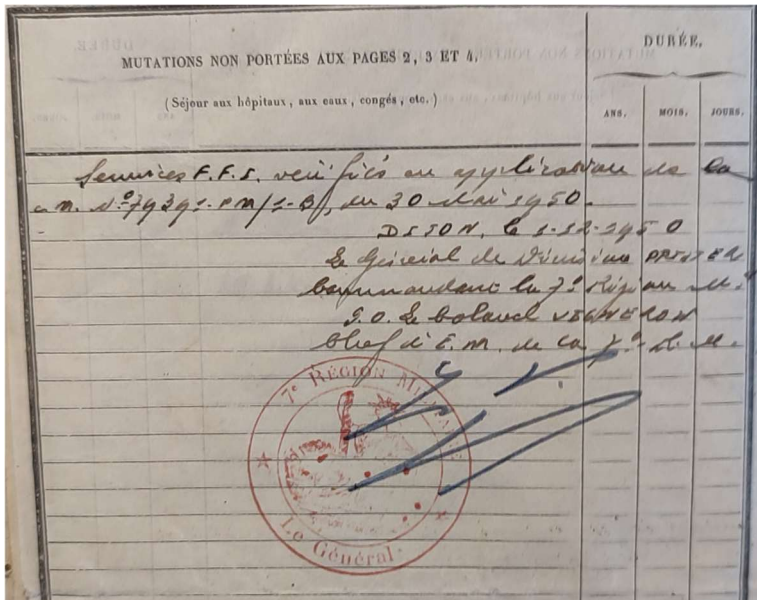 MUTATIONS NON PORTÉES AUX PAGES 2, 3 ET 4.
(Séjour aux hôpitaux, aux eaux, congés, etc.)
DURÉE.
ANS. MOIS. JOURS.
Services F.F.I. vérifiés en application de la
n. N° /1-B, du 30 Mai 1950.
DIJON, le 1-12-1950
Le Général de Division
Commandant la 7° Région M.
P.O. Le Colonel VIGNERON
Chef d'E.M. de la 7° R.M.
7e RÉGION MILITAIRE
Le Général